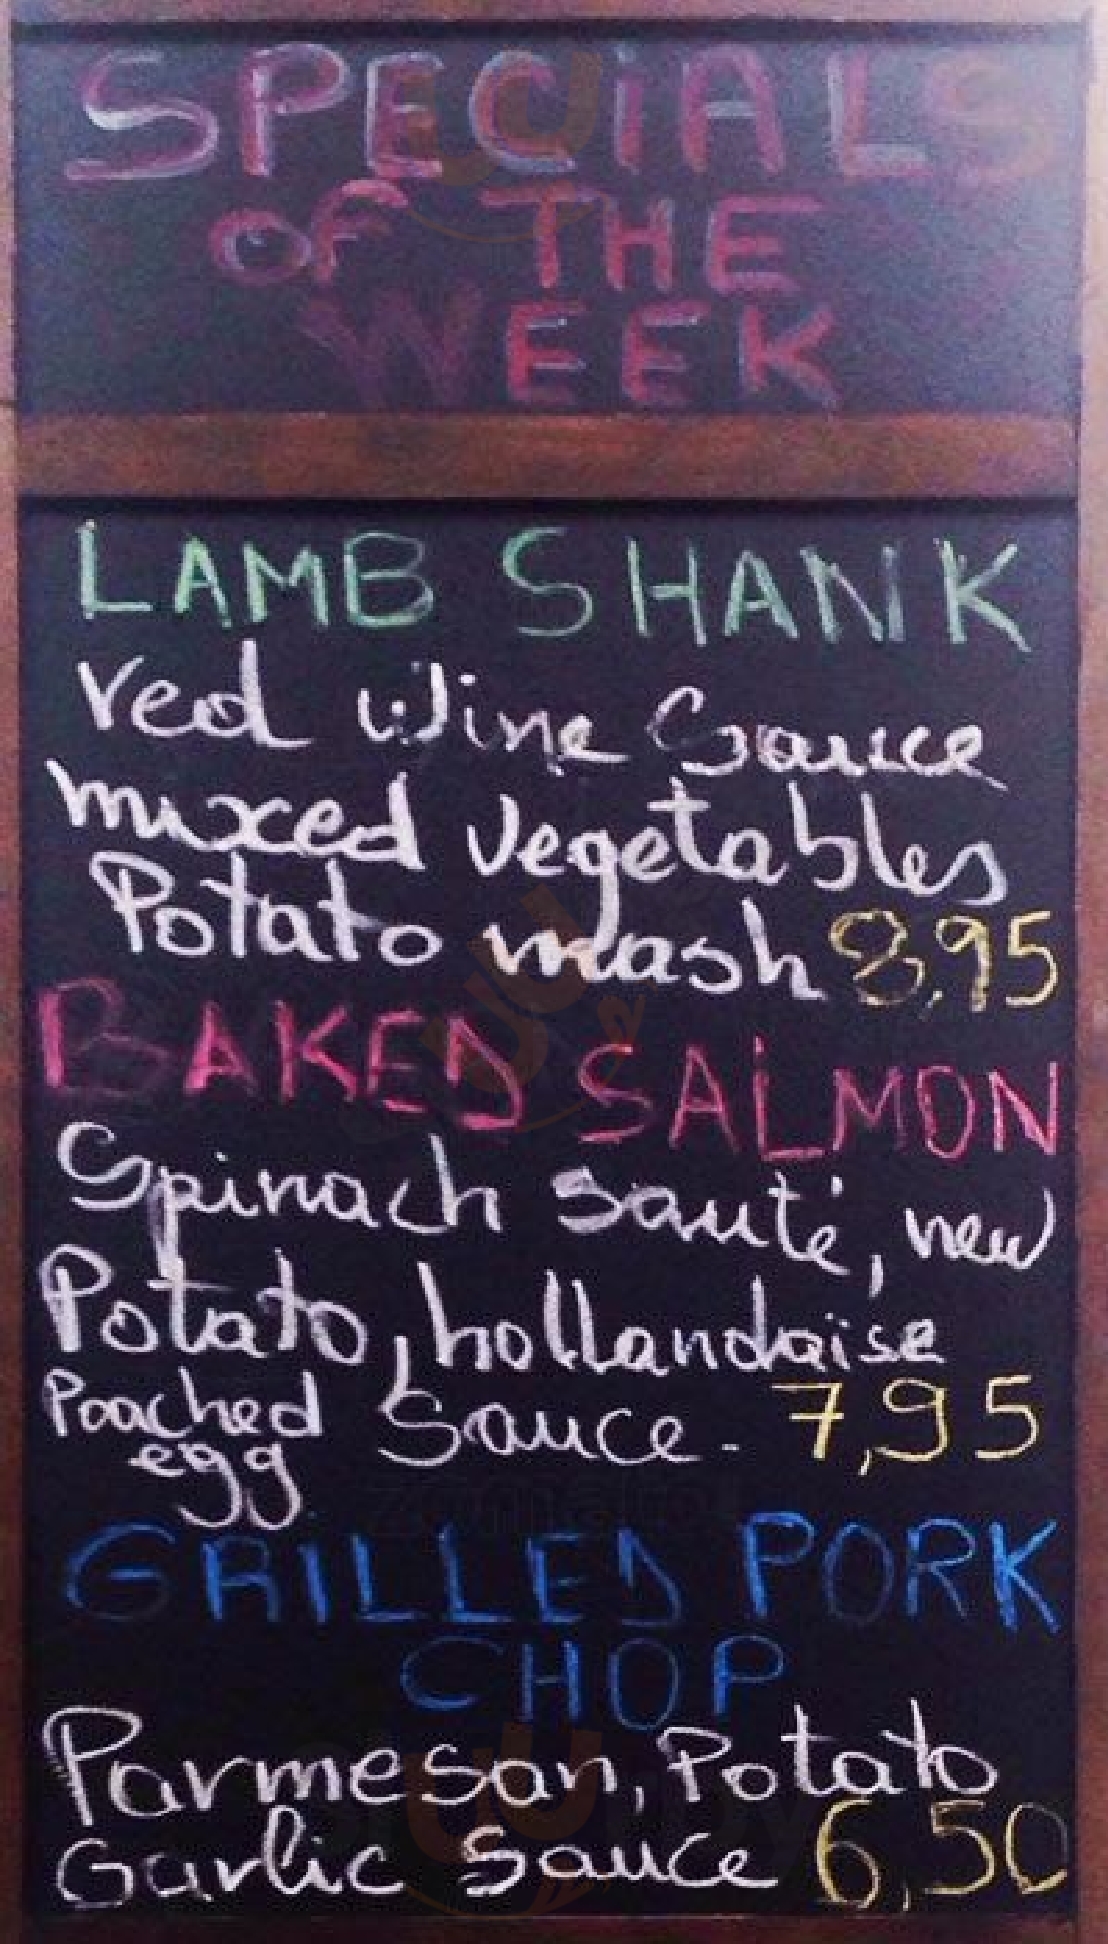 SPECiALS
OF THE
WEEK
LAMB SHANK
red wine Sauce
mixed vegetables
Potato mash 8,95
BAKED SALMON
Spinach sauté, new
Potato, hollandaïse
Poached egg Sauce. 7,95
GRILLED PORK
CHOP
Parmesan, Potato
Garlic Sauce 6,50